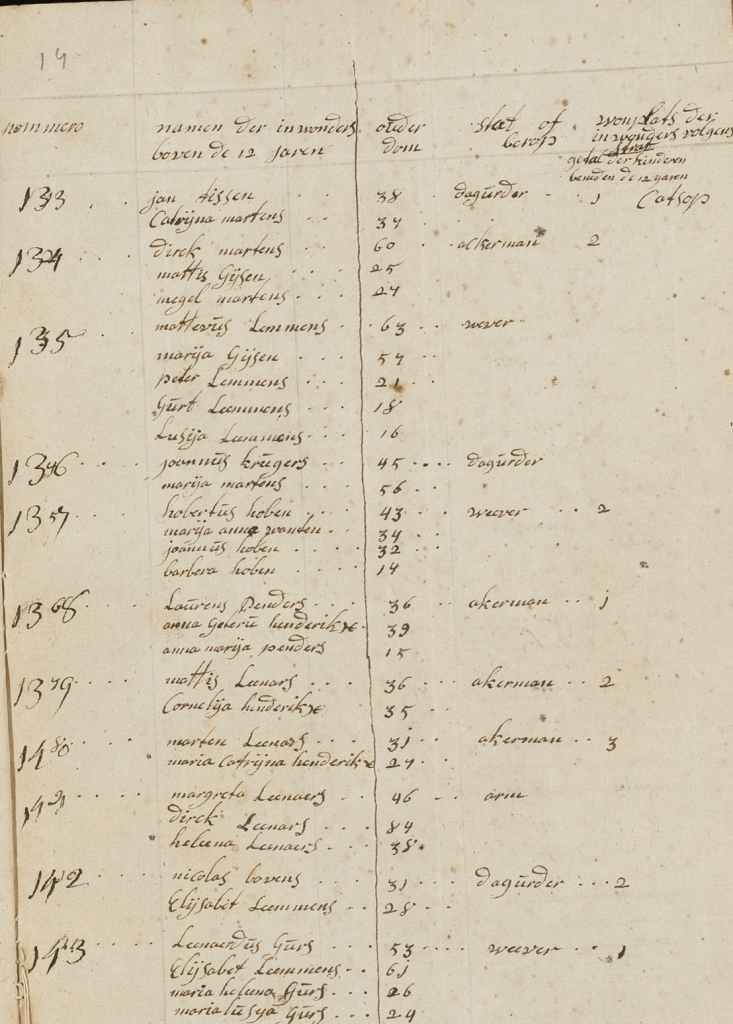 14
nommero namen der inwonders ouder stat of wonplats der
boven de 12 jaren dom berop inwonders volgens
strat
getal der kinderen
beneden de 12 yaren
133 jan tissen 38 dagurder 1 Catsop
Catrijna martens 37
134 dirck martens 60 ackerman 2
mattis Gijsen 25
megel martens 27
135 mattevüs Lemmens 63 wever
marija Gijsen 57
peter Lemmens 21
Gürt Lemmens 18
Lusija Lemmens 16
136 joannus krugers 45 dagurder
marija martens 56
137 hobertus hoben 43 weever 2
marija anna 34
joannüs hoben 32
barbera hoben 14
138 Laurens Penders 36 akerman 1
anna henderikx 39
anna marija penders 15
139 mattis Leenars 36 akerman 2
Cornelija henderikx 35
140 marten Leenars 31 akerman 3
maria Catrijna henderikx 27
141 margreta Leenaers 46 arm
dirck Leenars 84
heleena Leenaers 38
142 nicolas bovens 31 dagürder 2
Elijsabet Lemmens 28
143 Leenardüs Gürs 53 weever 1
Elijsabet Lemmens 61
maria heleena Gürs 26
maria lusya Gürs 24